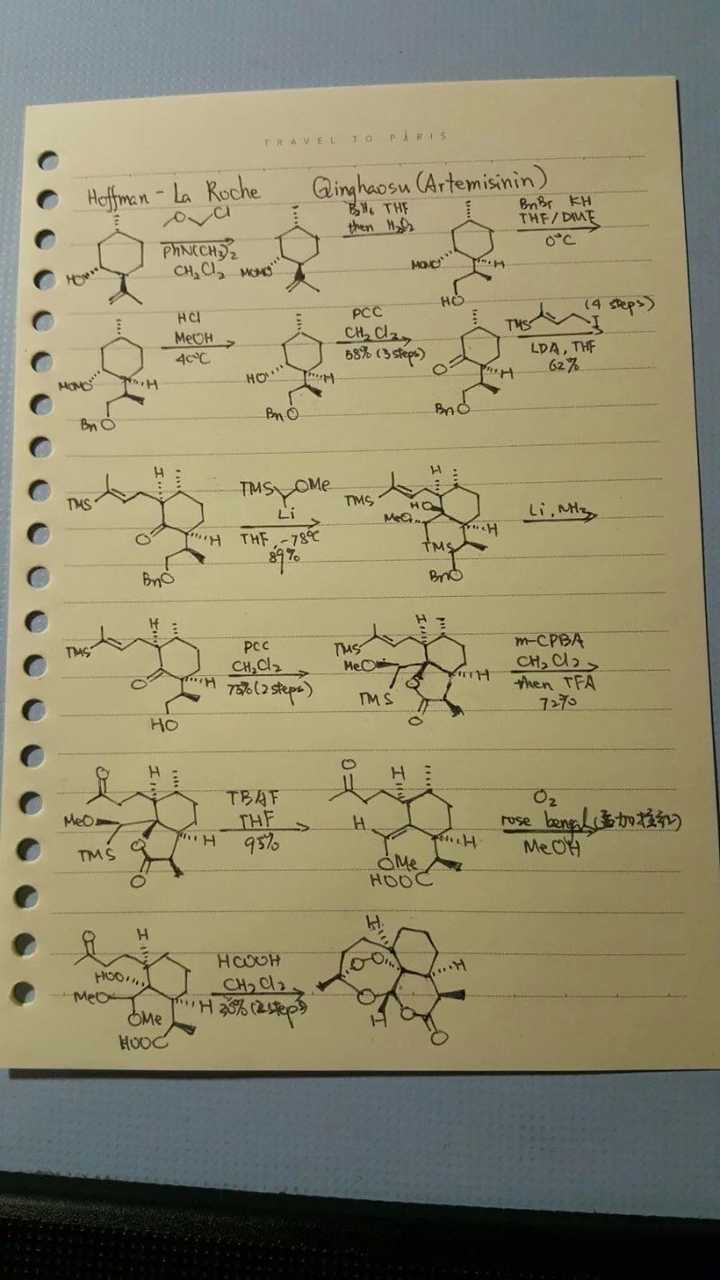 TRAVEL TO PARIS
Hoffman - La Roche Qinghaosu (Artemisinin)
O Cl
PhN(CH3)2
CH2Cl2
HO
MOMO
B2H6 THF
then H2O2
MOMO
H
HO
BnBr KH
THF/DME
0°C
MOMO
H
BnO
HCl
MeOH
40°C
HO
H
BnO
PCC
CH2Cl2
58% (3 steps)
O
H
BnO
TMS I (4 steps)
LDA, THF
62%
TMS
H
O
H
BnO
TMS OMe
Li
THF, -78°C
89%
TMS
H
HO
MeO
H
TMS
BnO
Li, NH3
TMS
H
O
H
HO
PCC
CH2Cl2
75% (2 steps)
TMS
H
MeO
H
TMS
O
O
m-CPBA
CH2Cl2
then TFA
72%
O
H
MeO
H
TMS
O
O
TBAF
THF
95%
O
H
H
H
OMe
HOOC
O2
rose bengal (孟加拉红)
MeOH
O
H
HOO
MeO
H
OMe
HOOC
HCOOH
CH2Cl2
30% (2 steps)
H
O O
H
O
H
O
O